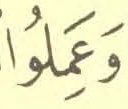 وَعَمِلُوا